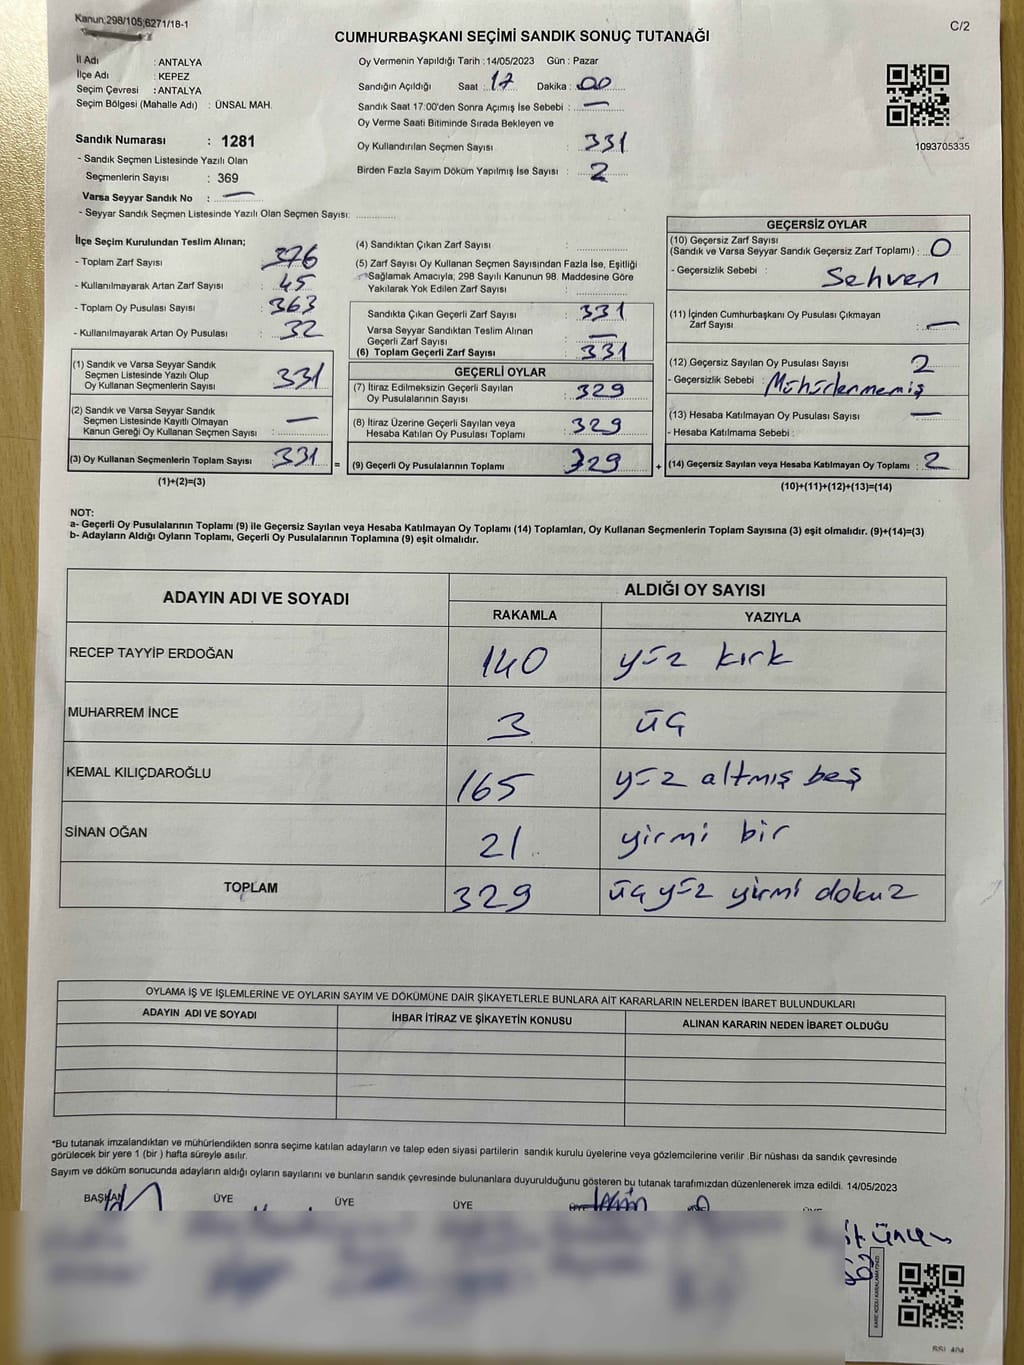 Kanun;298/105;6271/18-1
C/2
CUMHURBAŞKANI SEÇİMİ SANDIK SONUÇ TUTANAĞI
İl Adı : ANTALYA
İlçe Adı : KEPEZ
Seçim Çevresi : ANTALYA
Seçim Bölgesi (Mahalle Adı) : ÜNSAL MAH.
Sandık Numarası : 1281
- Sandık Seçmen Listesinde Yazılı Olan
Seçmenlerin Sayısı : 369
Varsa Seyyar Sandık No : —
- Seyyar Sandık Seçmen Listesinde Yazılı Olan Seçmen Sayısı:
Oy Vermenin Yapıldığı Tarih :14/05/2023 Gün : Pazar
Sandığın Açıldığı Saat : 17 Dakika : 00
Sandık Saat 17:00'den Sonra Açımış İse Sebebi : —
Oy Verme Saati Bitiminde Sırada Bekleyen ve
Oy Kullandırılan Seçmen Sayısı : 331
Birden Fazla Sayım Döküm Yapılmış İse Sayısı : 2
1093705335
İlçe Seçim Kurulundan Teslim Alınan;
- Toplam Zarf Sayısı : 376
- Kullanılmayarak Artan Zarf Sayısı : 45
- Toplam Oy Pusulası Sayısı : 363
- Kullanılmayarak Artan Oy Pusulası : 32
(1) Sandık ve Varsa Seyyar Sandık
Seçmen Listesinde Yazılı Olup
Oy Kullanan Seçmenlerin Sayısı : 331
(2) Sandık ve Varsa Seyyar Sandık
Seçmen Listesinde Kayıtlı Olmayan
Kanun Gereği Oy Kullanan Seçmen Sayısı : —
(3) Oy Kullanan Seçmenlerin Toplam Sayısı : 331 =
(1)+(2)=(3)
(4) Sandıktan Çıkan Zarf Sayısı :
(5) Zarf Sayısı Oy Kullanan Seçmen Sayısından Fazla İse, Eşitliği
Sağlamak Amacıyla; 298 Sayılı Kanunun 98. Maddesine Göre
Yakılarak Yok Edilen Zarf Sayısı :
Sandıkta Çıkan Geçerli Zarf Sayısı : 331
Varsa Seyyar Sandıktan Teslim Alınan
Geçerli Zarf Sayısı : —
(6) Toplam Geçerli Zarf Sayısı : 331
GEÇERLİ OYLAR
(7) İtiraz Edilmeksizin Geçerli Sayılan
Oy Pusulalarının Sayısı : 329
(8) İtiraz Üzerine Geçerli Sayılan veya
Hesaba Katılan Oy Pusulası Toplamı : 329
(9) Geçerli Oy Pusulalarının Toplamı : 329 +
GEÇERSİZ OYLAR
(10) Geçersiz Zarf Sayısı
(Sandık ve Varsa Seyyar Sandık Geçersiz Zarf Toplamı) : 0
- Geçersizlik Sebebi : Sehven
(11) İçinden Cumhurbaşkanı Oy Pusulası Çıkmayan
Zarf Sayısı : —
(12) Geçersiz Sayılan Oy Pusulası Sayısı : 2
- Geçersizlik Sebebi : Mühürlenmemiş
(13) Hesaba Katılmayan Oy Pusulası Sayısı : —
- Hesaba Katılmama Sebebi :
(14) Geçersiz Sayılan veya Hesaba Katılmayan Oy Toplamı : 2
(10)+(11)+(12)+(13)=(14)
NOT:
a- Geçerli Oy Pusulalarının Toplamı (9) ile Geçersiz Sayılan veya Hesaba Katılmayan Oy Toplamı (14) Toplamları, Oy Kullanan Seçmenlerin Toplam Sayısına (3) eşit olmalıdır. (9)+(14)=(3)
b- Adayların Aldığı Oyların Toplamı, Geçerli Oy Pusulalarının Toplamına (9) eşit olmalıdır.
ADAYIN ADI VE SOYADI
ALDIĞI OY SAYISI
RAKAMLA YAZIYLA
RECEP TAYYİP ERDOĞAN 140 yüz kırk
MUHARREM İNCE 3 üç
KEMAL KILIÇDAROĞLU 165 yüz altmış beş
SİNAN OĞAN 21 yirmi bir
TOPLAM 329 üç yüz yirmi dokuz
OYLAMA İŞ VE İŞLEMLERİNE VE OYLARIN SAYIM VE DÖKÜMÜNE DAİR ŞİKAYETLERLE BUNLARA AİT KARARLARIN NELERDEN İBARET BULUNDUKLARI
ADAYIN ADI VE SOYADI İHBAR İTİRAZ VE ŞİKAYETİN KONUSU ALINAN KARARIN NEDEN İBARET OLDUĞU
*Bu tutanak imzalandıktan ve mühürlendikten sonra seçime katılan adayların ve talep eden siyasi partilerin sandık kurulu üyelerine veya gözlemcilerine verilir .Bir nüshası da sandık çevresinde
görülecek bir yere 1 (bir ) hafta süreyle asılır.
Sayım ve döküm sonucunda adayların aldığı oyların sayılarını ve bunların sandık çevresinde bulunanlara duyurulduğunu gösteren bu tutanak tarafımızdan düzenlenerek imza edildi. 14/05/2023
BAŞKAN ÜYE ÜYE ÜYE ÜYE